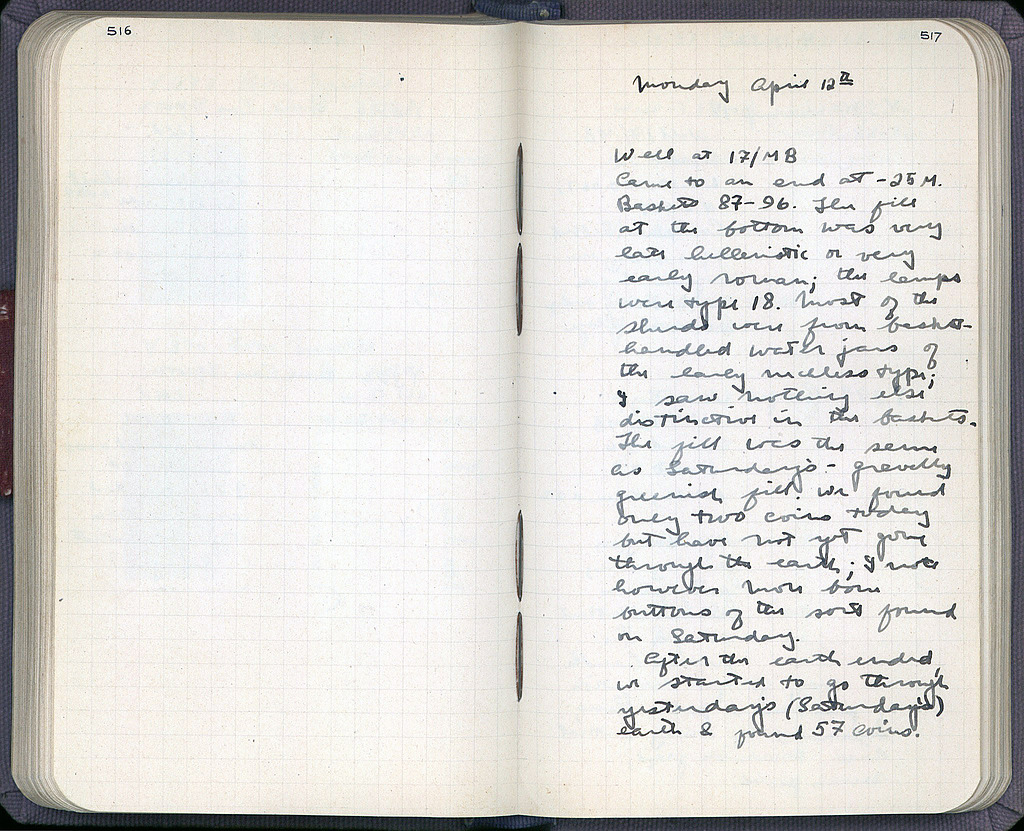 516
517
Monday April 12th
Well at 17/MB
Came to an end at -25 M.
Baskets 87-96. The fill
at the bottom was very
late hellenistic or very
early roman; the lamps
were type 18. Most of the
sherds were from basket-
handled water jars of
the early neckless type;
I saw nothing else
distinctive in the baskets.
The fill was the same
as Saturday's - gravelly
greenish fill. We found
only two coins today
but have not yet gone
through the earth; I note
however more bone
buttons of the sort found
on Saturday.
After the earth ended,
we started to go through
yesterday's (Saturday's)
earth & found 57 coins.